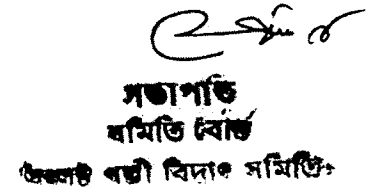 সভাপতি
সমিতি বোর্ড
পল্লী বিদ্যুৎ সমিতি